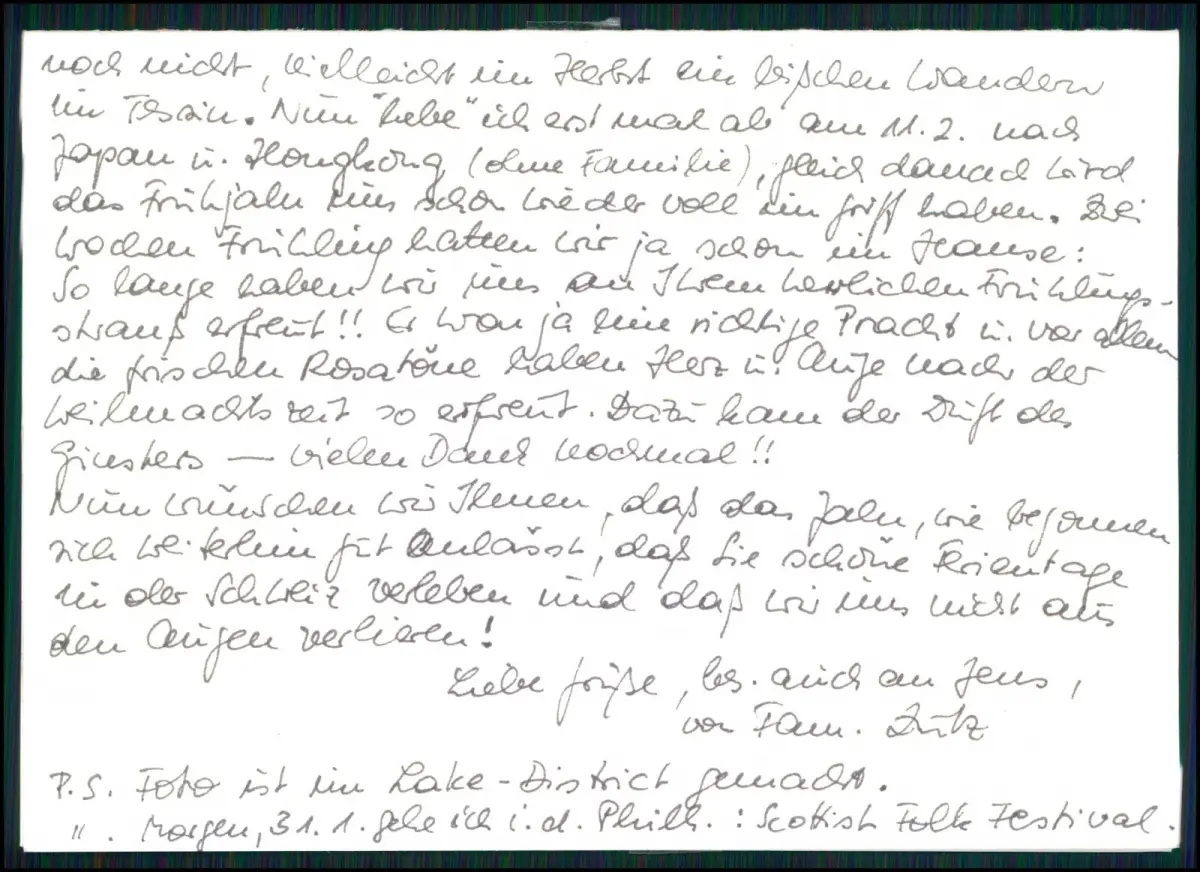 noch nicht, vielleicht im Herbst ein bißchen Wandern
im Tessin. Nun "hebe" ich erst mal ab am 11.2. nach
Japan u. Hongkong (ohne Familie), gleich danach wird
das Frühjahr uns schon wieder voll im Griff haben. Drei
Wochen Frühling hatten wir ja schon im Hause:
So lange haben wir uns an Ihrem herrlichen Frühlings-
strauß erfreut!! Er war ja eine richtige Pracht u. vor allem
die frischen Rosatöne haben Herz u. Auge nach der
Weihnachtszeit so erfreut. Dazu kam der Duft des
Ginsters — vielen Dank nochmal!!
Nun wünschen wir Ihnen, daß das Jahr, wie begonnen
sich weiterhin gut anlässt, daß Sie schöne Ferientage
in der Schweiz verleben und daß wir uns nicht aus
den Augen verlieren!
Liebe Grüße, bes. auch an Jens,
von Fam.
P.S. Foto ist im Lake-District gemacht.
". Morgen, 31.1. gehe ich i.d. Philh.: Scottish Folk Festival.